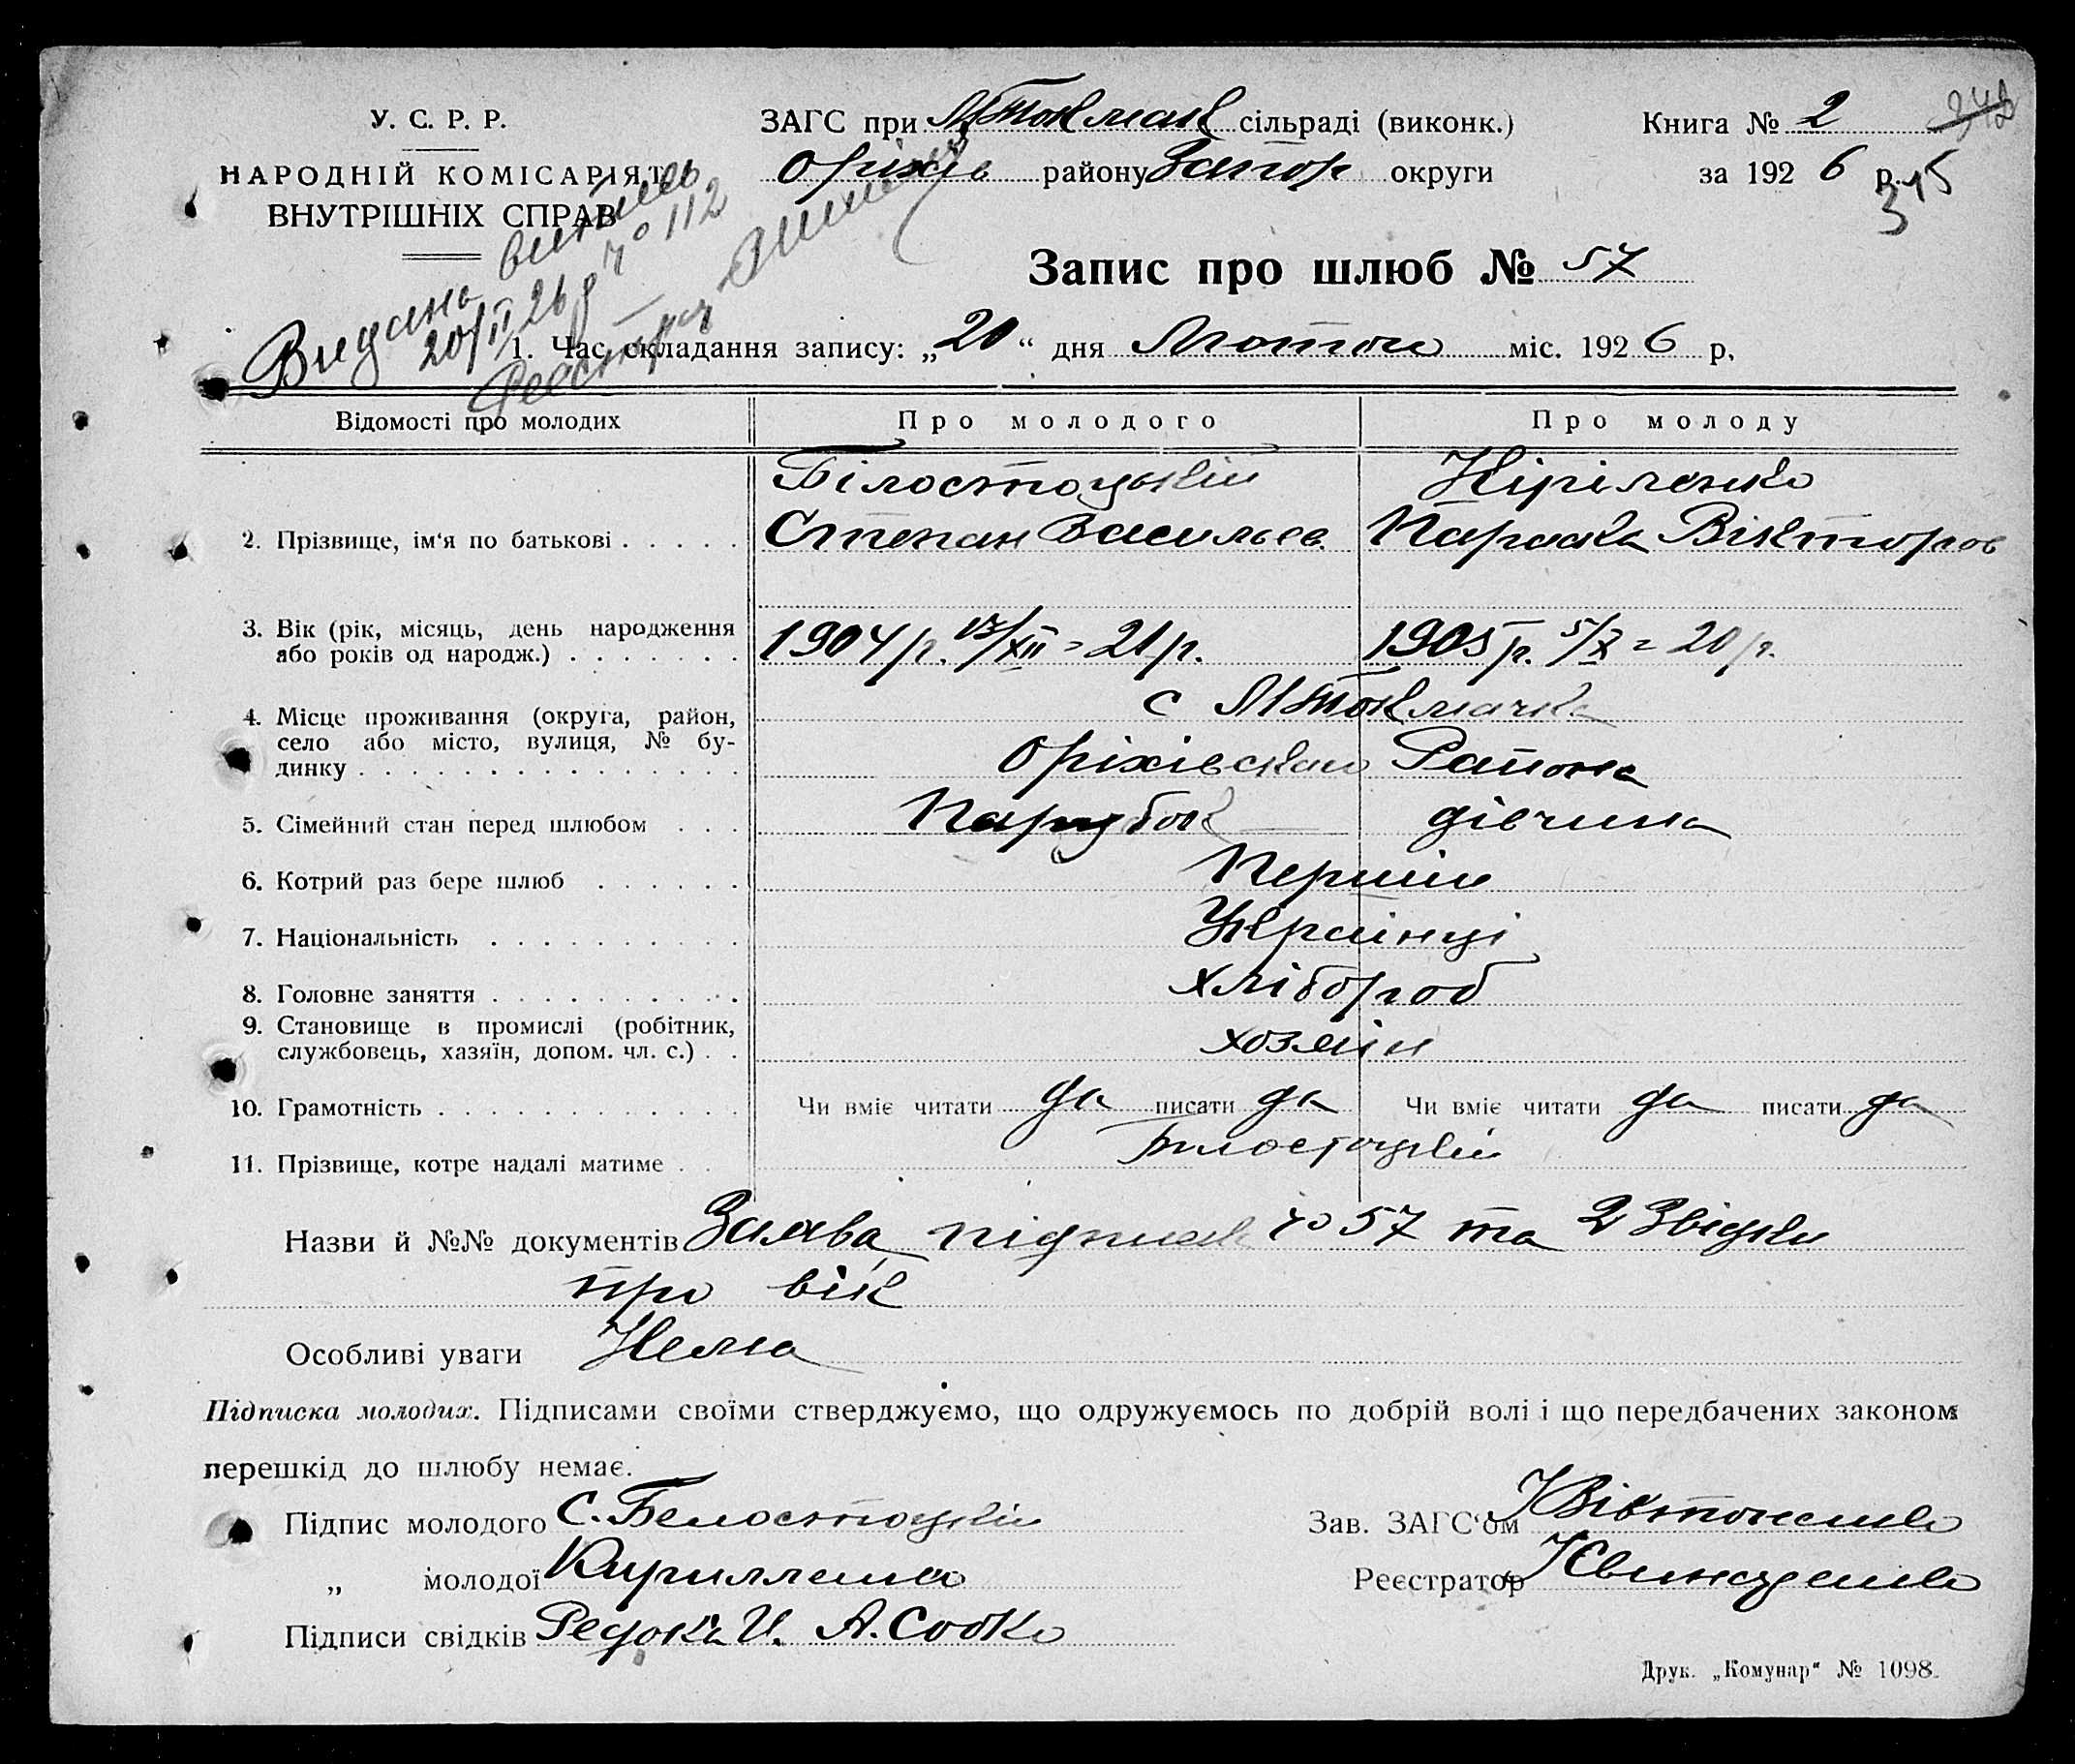 У. С. Р. Р.
НАРОДНІЙ КОМІСАРІЯТ
ВНУТРІШНІХ СПРАВ
ЗАГС при МТокмак сільраді (виконк.)
Оріхів району Запор округи
Книга № 2
за 192 6 р.
342
315
Видано витяг
20/II 26 р № 112
Реєстратор
Запис про шлюб № 57
1. Час складання запису: „20“ дня Лютого міс. 192 6 р.
Відомості про молодих
Про молодого
Про молоду
2. Прізвище, ім‘я по батькові . . . . .
Білостоцькій
Степан Васильев.
Кіріленко
Параска Вікторов
3. Вік (рік, місяць, день народження
або років од народж.) . . . . . . .
1904 р. 13/XII = 21 р.
1905 р. 5/X = 20 р.
4. Місце проживання (округа, район,
село або місто, вулиця, № бу-
динку . . . . . . . . . . . . . . .
с МТокмачка
Оріхівского Району
5. Сімейний стан перед шлюбом . . .
Парубок
дівчина
6. Котрий раз бере шлюб . . . . . .
Перший
7. Національність . . . . . . . . . .
Українці
8. Головне заняття . . . . . . . . . .
хлібороб
9. Становище в промислі (робітник,
службовець, хазяїн, допом. чл. с.) . .
хозяїн
10. Грамотність . . . . . . . . . . . .
Чи вміє читати да писати да
Чи вміє читати да писати да
11. Прізвище, котре надалі матиме . . .
Білостоцькій
Назви й №№ документів Заява, підписка № 57 та 2 Звідки
про вік
Особливі уваги Нема
Підписка молодих. Підписами своїми стверджуємо, що одружуємось по добрій волі і що передбачених законом
перешкід до шлюбу немає.
Підпис молодого С. Белостоцкій
„ молодої Кирилленко
Підписи свідків Редока И. А. Собко
Зав. ЗАГС‘ом
Реєстратор
Друк. „Комунар“ № 1098.